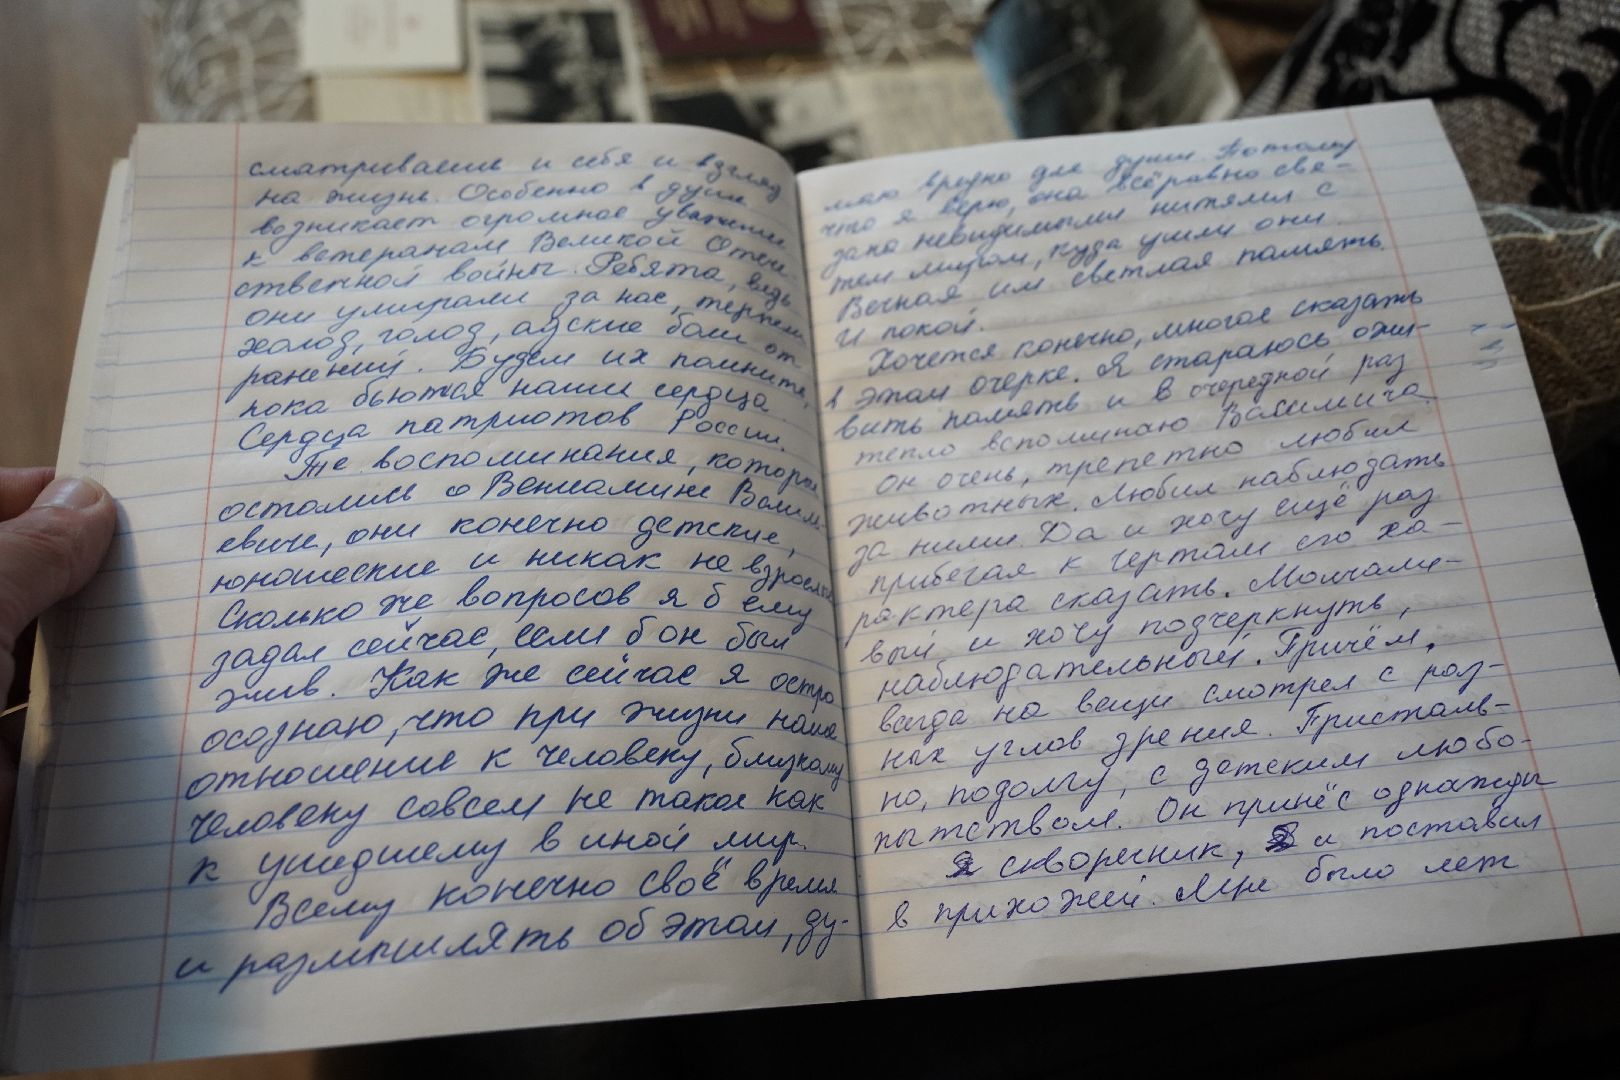 сматриваешь и себя и взгляд
на жизнь. Особенно в душе
возникает огромное уважение
к ветеранам Великой Отече-
ственной войны. Ребята, ведь
они умирали за нас, терпели
холод, голод, адские боли от
ранений. Будем их помнить,
пока бьются наши сердца.
Сердца патриотов России.
Те воспоминания, которые
остались о Вениамине Валим-
евиче, они конечно детские,
юношеские и никак не взрослые
Сколько же вопросов я б ему
задал сейчас, если б он был
жив. Как же сейчас я остро
осознаю, что при жизни наше
отношение к человеку, близкому
человеку совсем не такое как
к ушедшему в иной мир.
Всему конечно своё время
и размышлять об этом, ду-
маю вредно для души. Потому
что я верю, она всё равно свя-
зана невидимыми нитями с
тем миром, куда ушли они.
Вечная им светлая память.
И покой.
Хочется конечно, многое сказать
в этом очерке. Я стараюсь ожи-
вить память и в очередной раз
тепло вспоминаю Валимича.
Он очень, трепетно любил
животных. Любил наблюдать
за ними. Да и хочу ещё раз
прибегая к чертам его ха-
рактера сказать. Молчали-
вый и хочу подчеркнуть,
наблюдательный. Причём,
всегда на вещи смотрел с раз-
ных углов зрения. Присталь-
но, подолгу, с детским любо-
пытством. Он принёс однажды
скворечник, и поставил
в прихожей. Мне было лет